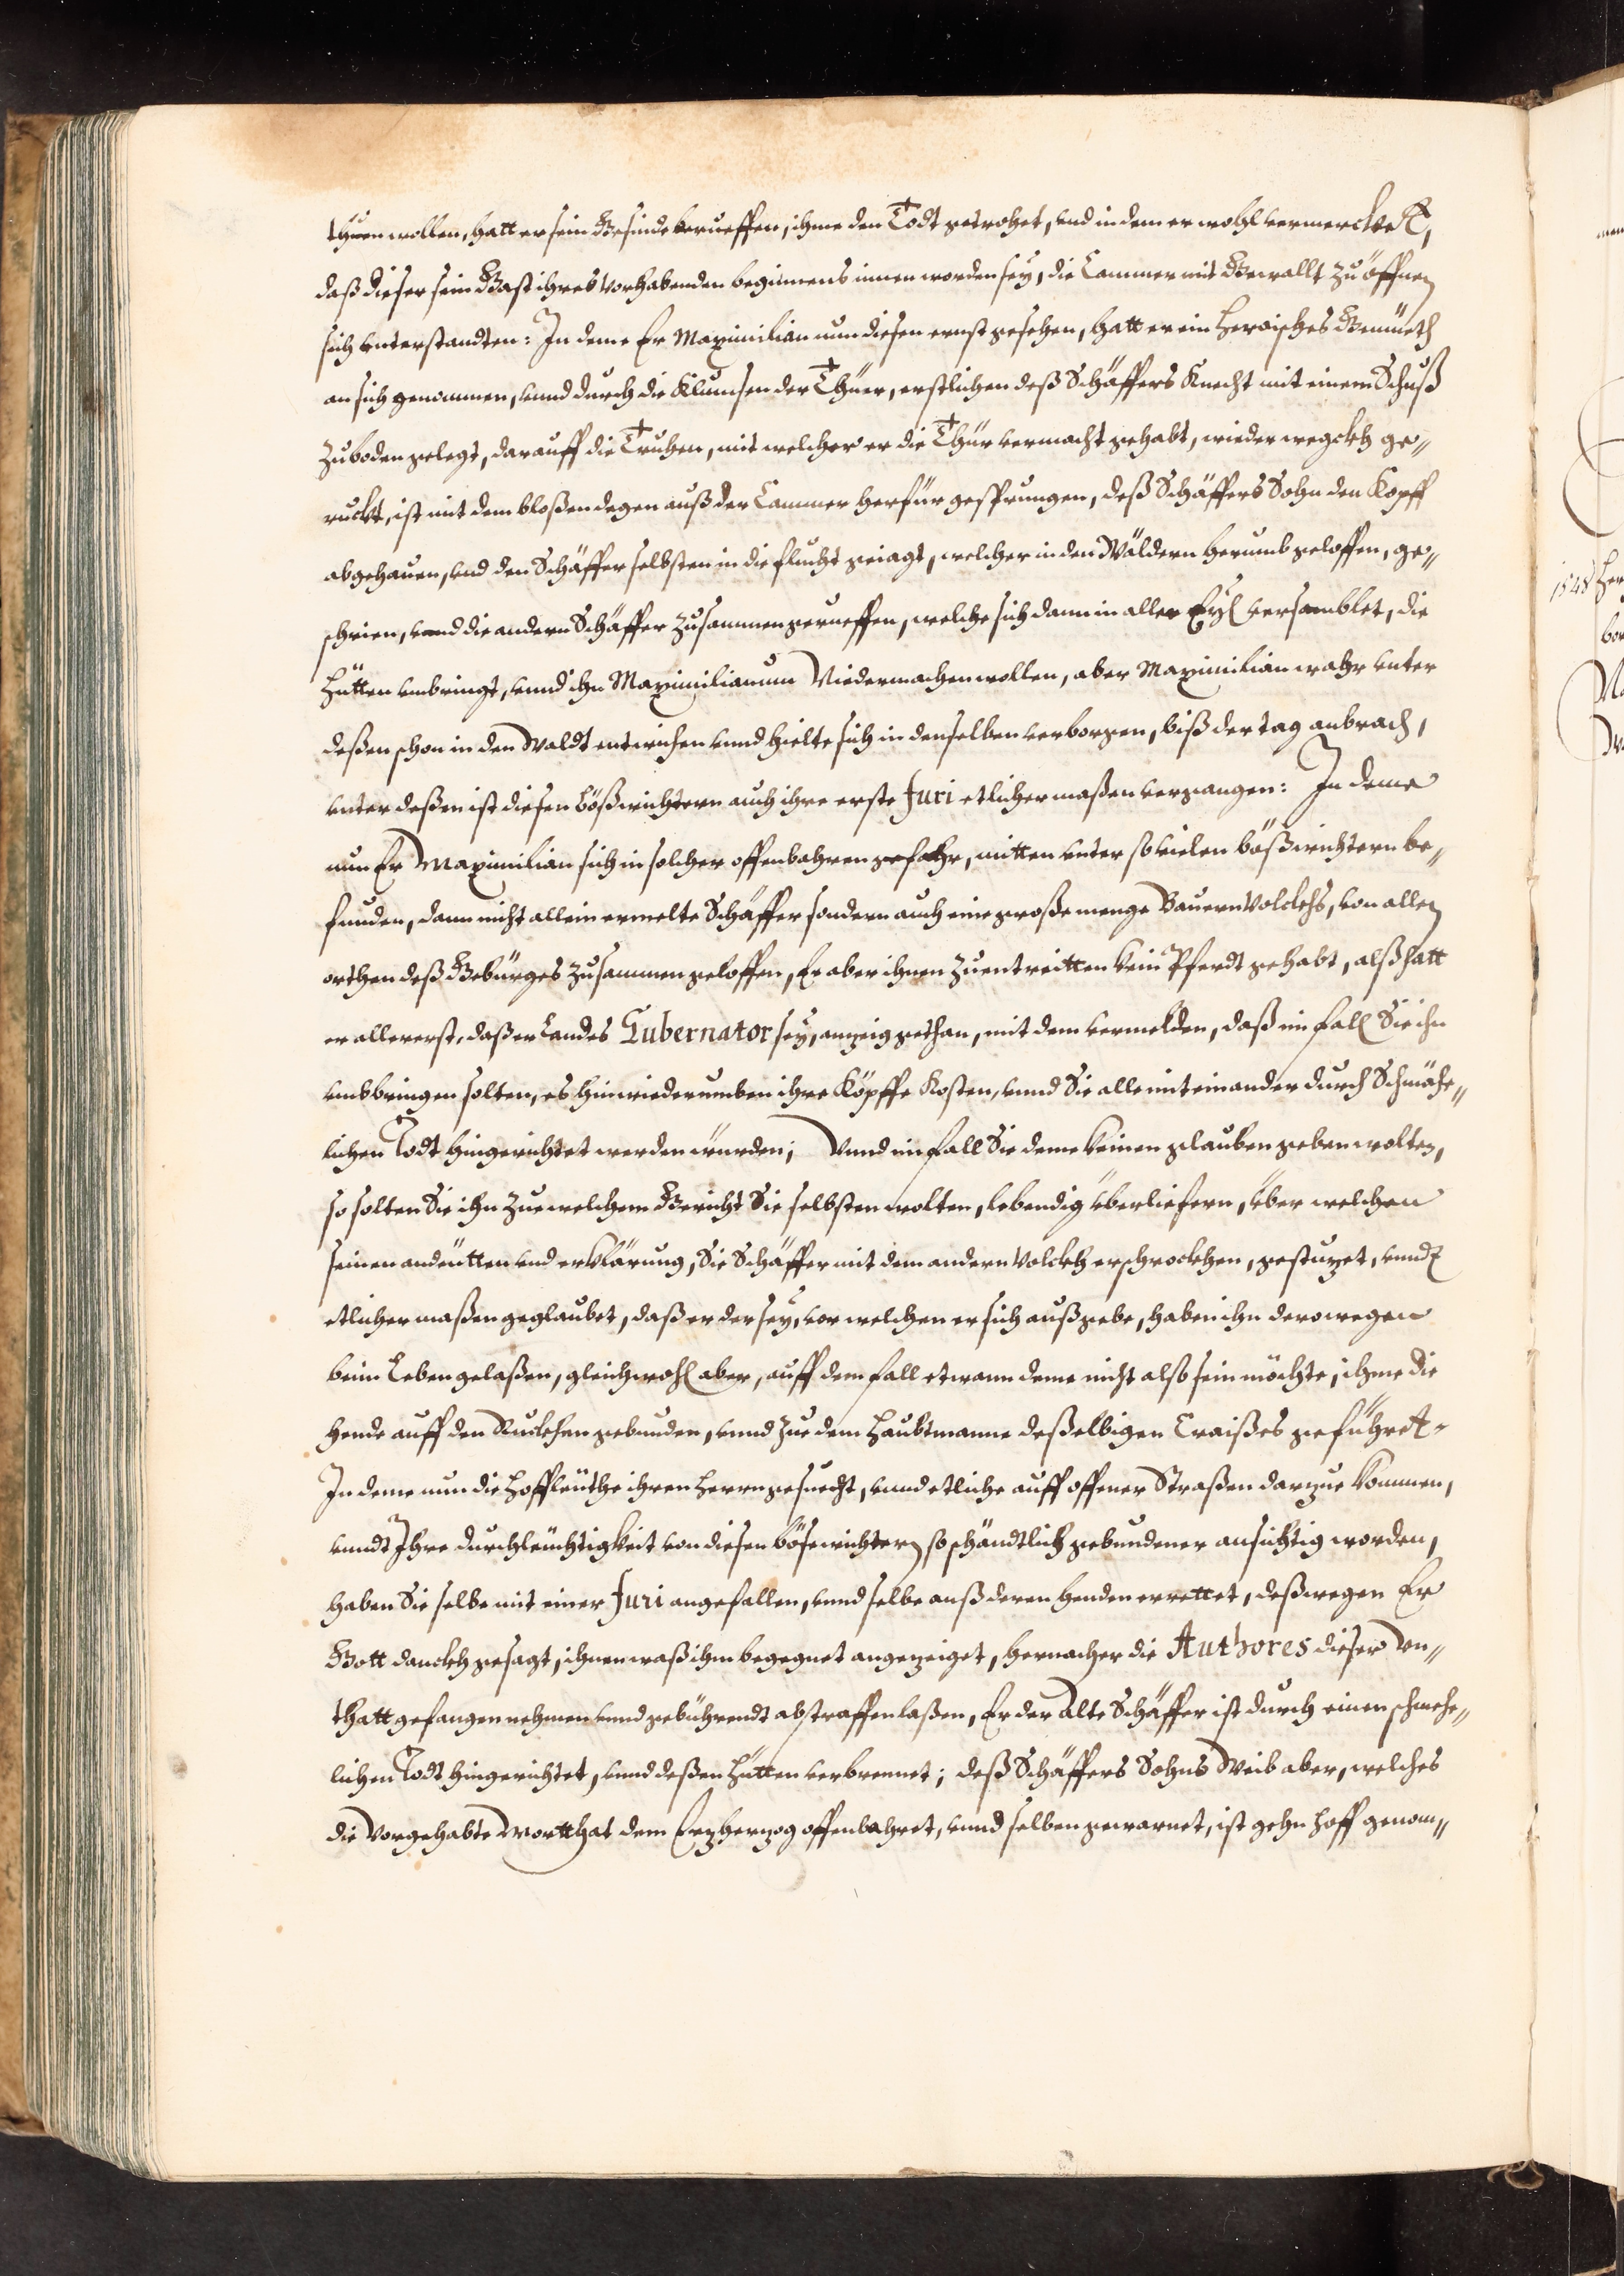 thuen wollen, hatt er sein Gesinde beruffen, ihme den Todt getrohet, und in dem er wohl vermerckhet,
daß dieser sein Gast ihres vorhabenden beginnens innen worden sey, die Cammer mit Gewallt zu öffnen
sich unterstandten: In deme Er Maximilian nun diesen ernst gesehen, hatt er ein heroisches Gemüeth
an sich genommen, unnd durch die Klumsen der Thüer, erstlichen deß Schäffers Knecht mit einem Schuß
zu boden gelegt, darauff die Truhen, mit welcher er die Thür vermacht gehabt, wieder wegckh ge„
ruckt, ist mit dem bloßen degen auß der Cammer herfür gesprungen, deß Schäffers Sohn den Kopff
abgehauen, und den Schäffer selbsten in die flucht geiagt, welcher in den Wäldern herumb geloffen, ge„
schrien, unnd die andern Schäffer zusammen gerueffen, welche sich dann in aller Eyl versamblet, die
Hütten umbringt, unnd ihn Maximilianum Niedermachen wollen, aber Maximilian wahr unter
deßen schon in den Waldt entwichen unnd hielte sich in denselben verborgen, biß der tag anbrach,
unter deßen ist diesen Bößwichtern auch ihre erste furi etlicher maßen vergangen: In deme
nun Er Maximilian sich in solcher offenbahren gefahr, mitten unter so vielen bößwichtern be„
funden, dann nicht allein ermelte Schäffer sondern auch eine große menge Bauern Volckhs, von allen
orthen deß Gebürges zusammen geloffen, Er aber ihnen zu entreitten kein Pferdt gehabt, alß hatt
er allererst, daß er Landes Gubernator sey, anzeig gethan, mit dem vermelden, daß im fall Sie ihn
umbbringen solten, es hinwiederumben ihre Köpffe Kosten, unnd Sie alle miteinander durch Schmähe„
lichen Todt hingerichtet werden würden; Unnd im fall Sie deme keinen glauben geben wolten,
so solten Sie ihn zue welchem Gericht Sie selbsten wolten, lebendig überliefern, über welchen
seinen andeütten und erklärung, Sie Schäffer mit dem andern Volckh erschrockhen, gestuzet, unnd
etlicher maßen geglaubet, daß er der sey, vor welchen er sich außgebe, haben ihn derowegen
beim Leben gelaßen, gleichwohl aber, auff dem fall etwann deme nicht also sein möchte, ihme die
Hende auff den Ruckhen gebunden, unnd zue dem Haubtmanne deßelbigen Craißes geführet.
In deme nun die Hoffleüthe ihren Herrn gesuecht, unnd etliche auff offener Straßen darzue kommen,
unndt Ihre Durchleüchtigkeit von diesen bösewichtern so schändtlich gebundener ansichtig worden,
haben Sie selbe mit einer furi angefallen, unnd selbe auß deren henden errettet, deßwegen Er
Gott danckh gesagt, ihnen waß ihm begegnet angezeiget, hernacher die Authores dieser Un„
thatt gefangen nehmen unnd gebührendt abstraffen laßen, Er der Alte Schäffer ist durch einen schmehe„
lichen Todt hingerichtet, unnd deßen Hütten verbrennet; deß Schäffers Sohns Weib aber, welches
die Vorgehabte Mortthat dem Erzherzog offenbahret, unnd selben gewarnet, ist gehn Hoff genom„
1548